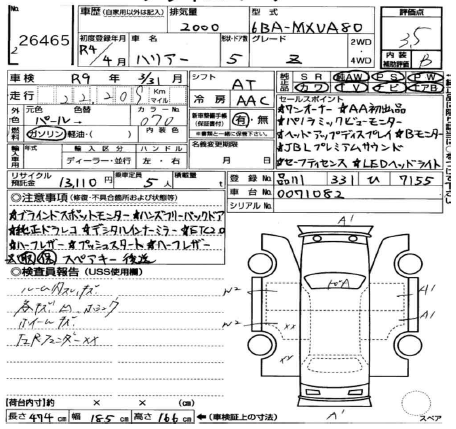 No. 26465
車歴 (自家用以外は記入) 排気量 2000 型式 6BA-MXUA80 評価点 3.5
初度登録年月 R4/4月 車名 ハリアー 形状・ドア数 5 グレード Z 2WD・4WD 内装補助評価 B
車検 R9年 3/31月 シフト AT 純正品 SR 純AW PS PW
走行 22,205 Km マイル 冷房 AAC カワ TV ナビ エアB
外装色 元色 色替 カラーNo. セールスポイント
パール→ 070 新車整備手帳(保証書付) 有・無 ★ワンオーナー ★AA初出品
内装色 ※書類と一緒に保管下さい。 ★パノラミックビューモニター
燃料 ガソリン 軽油・( ) 名義変更期限 月 日 ★ヘッドアップディスプレイ ★Bモニター
輸入車用 年式 輸入区分 ハンドル ★JBLプレミアムサウンド
ディーラー・並行 左・右 ★セーフティセンス ★LEDヘッドライト
リサイクル預託金 13,110円 乗車定員 5人 積載量 t 登録No. 品川 331 ひ 7155
車台No. 0071082
シリアルNo.
◎注意事項 (修復・不具合箇所および状態等)
★ブラインドスポットモニター ★ハンズフリーバックドア
★純正ドラレコ ★デジタルインナーミラー ★ETC2.0
★ハーフレザー ★プッシュスタート ★ハーフレザー
取 保 スペアキー 後送
◎検査員報告 (USS使用欄)
ルーム内スレ、キズ
各キズ
ホイールキズ
左Rフェンダーxx
A'
W2
A1
W2
xx
A1
xy
A'
スペア
【荷台内寸】約 × × (cm)
長さ 474 cm 幅 185 cm 高さ 166 cm ←(車検証上の寸法)